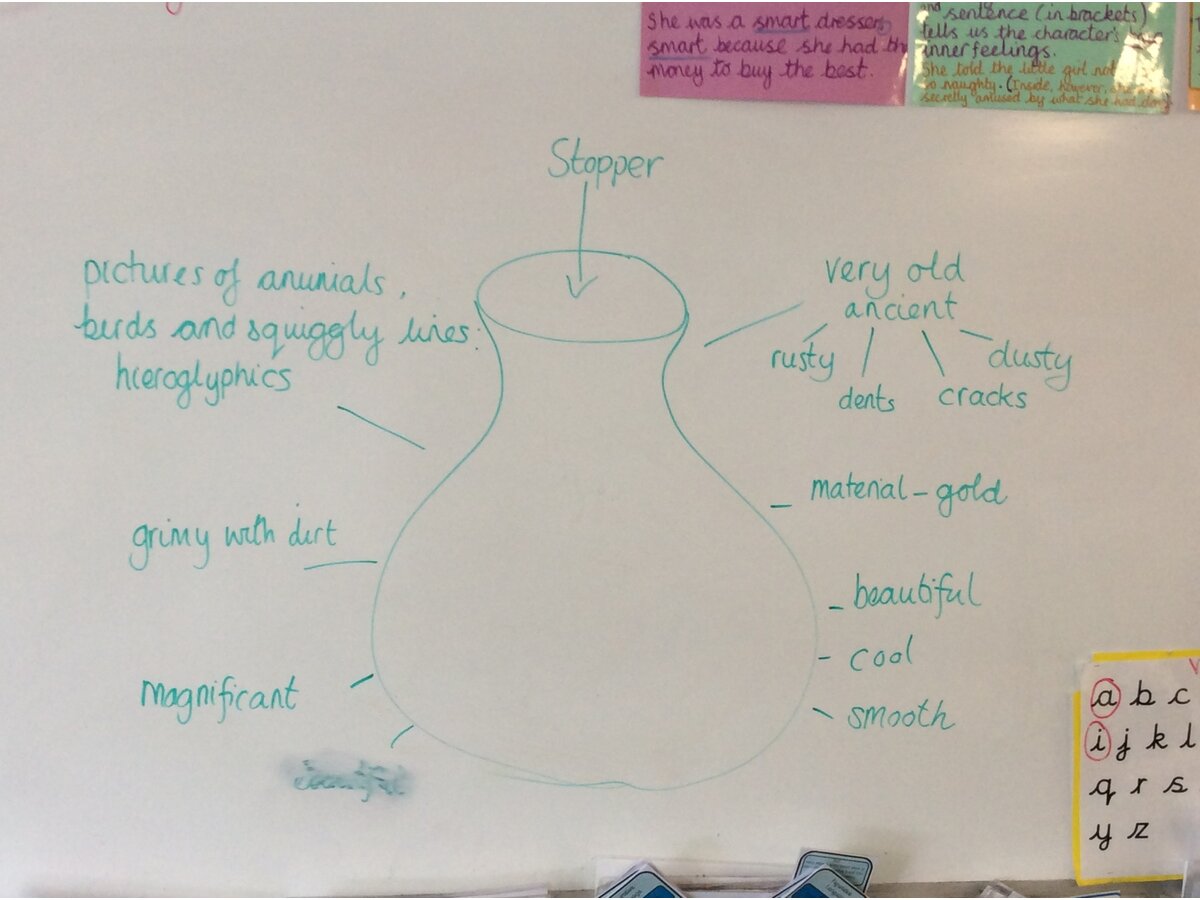 She was a smart dresser,
smart because she had th
money to buy the best.
and sentence (in brackets)
tells us the character's
inner feelings.
She told the little girl not
so naughty. (Inside, however, she
secretly amused by what she had done)
Stopper
pictures of anumials,
birds and squiggly lines:
hieroglyphics
very old
ancient
rusty
dents
cracks
dusty
material - gold
grimy with dirt
beautiful
cool
magnificant
smooth
a b c
i j k l
q r s
y z